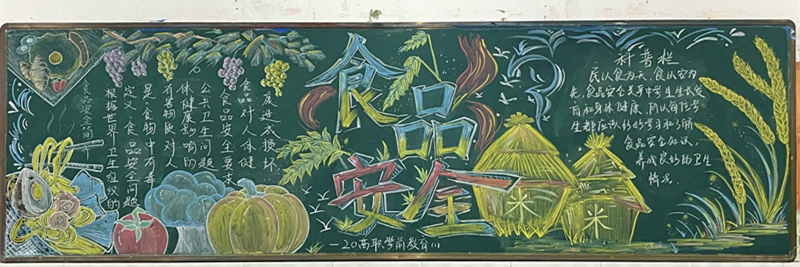 食品安全问
根据世界卫生组织的
定义，食品安全问题
是"食物中有毒
有害物质对人
体健康影响的
公共卫生问题
食品安全要求
食品对人体健
康造成损坏
食品
安全
米
米
—20高职学前教育(1)
科普栏
民以食为天，食以安为
先，食品安全关系中学生生长发
育和身体健康，所以每位学
生都应该好好学习和了解
食品安全知识，
养成良好的卫生
情况。